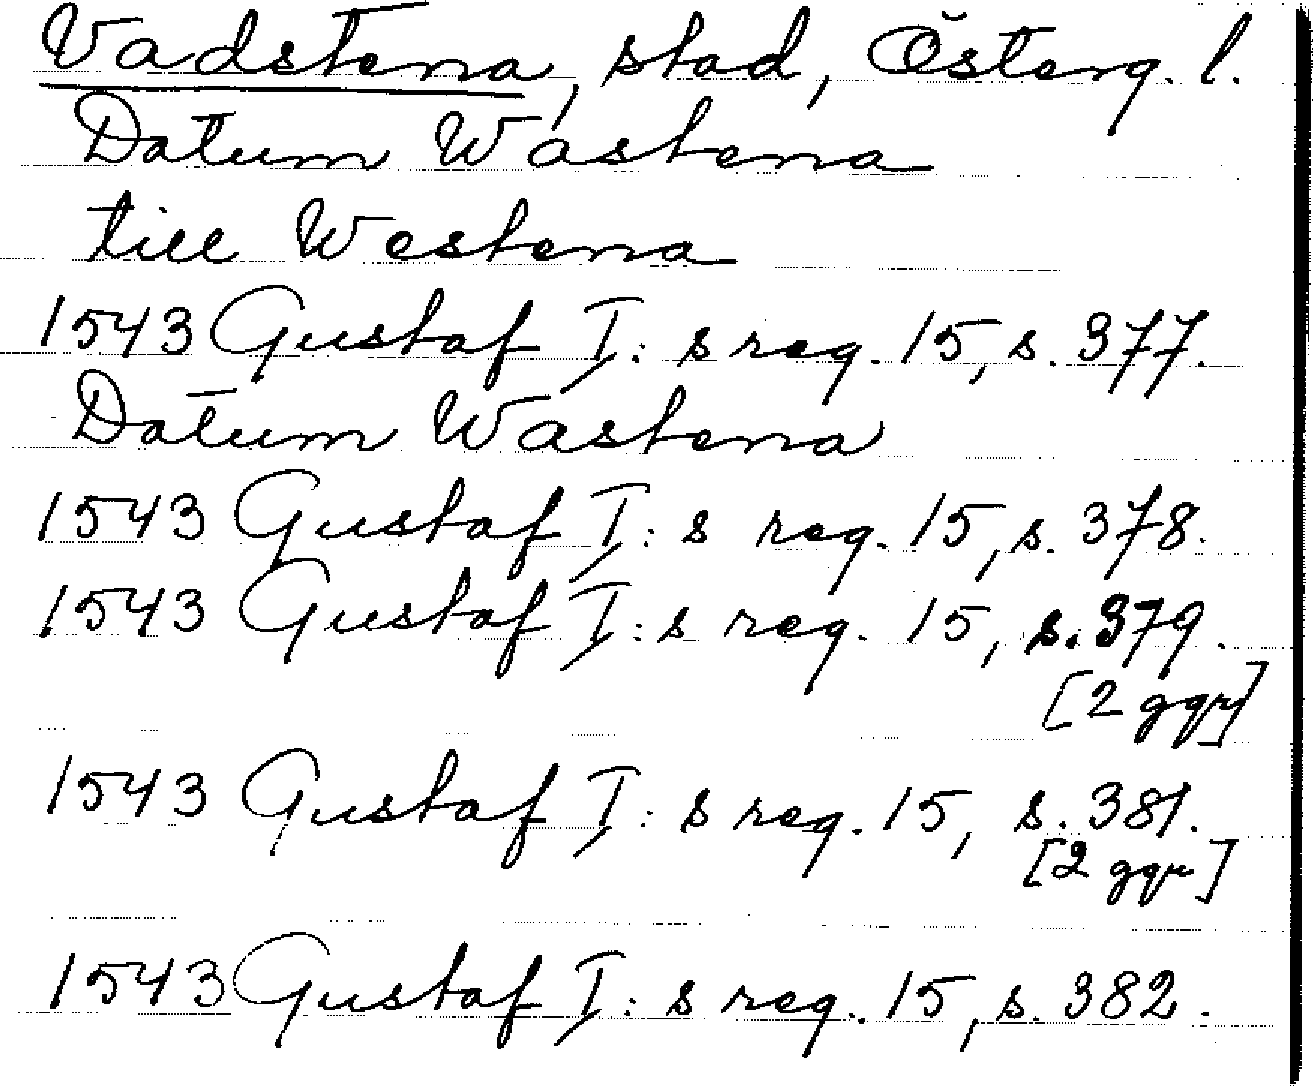 Vadstena, stad, Österg. l.
Datum Wastena
till Westena
1543 Gustaf I:s reg. 15, s. 377.
Datum Wastena
1543 Gustaf I:s reg. 15, s. 378.
1543 Gustaf I:s reg. 15, s. 379.
[2 ggr]
1543 Gustaf I:s reg. 15, s. 381.
[2 ggr]
1543 Gustaf I:s reg. 15, s. 382.